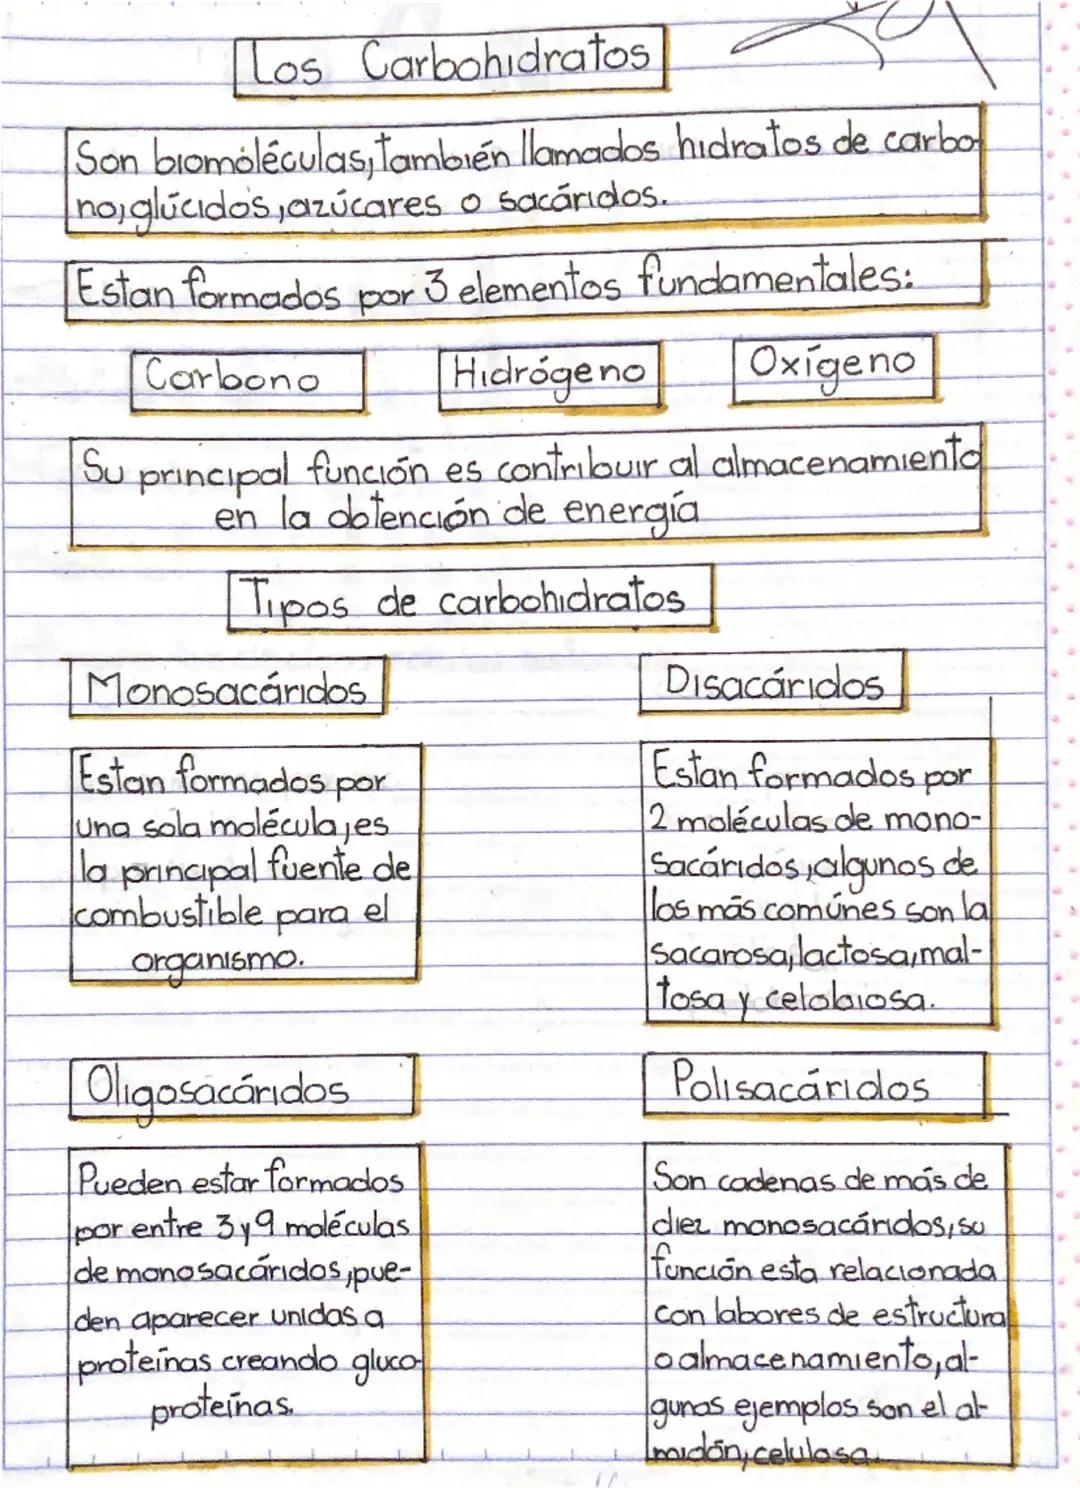 Los Carbohidratos
Son biomoléculas, también llamados hidratos de carbo-
no, glúcidos, azúcares o sacáridos.
Estan formados por 3 elementos fundamentales:
Carbono
Hidrógeno
Oxígeno
Su principal función es contribuir al almacenamiento
en la obtención de energía
Tipos de carbohidratos
Monosacáridos
Estan formados por
una sola molécula, es
la principal fuente de
combustible para el
organismo.
Disacáridos
Estan formados por
2 moléculas de mono-
sacáridos, algunos de
los más comúnes son la
sacarosa, lactosa, mal-
tosa y celobiosa.
Oligosacáridos
Pueden estar formados
por entre 3 y 9 moléculas
de monosacáridos, pue-
den aparecer unidas a
proteínas creando gluco-
proteínas.
Polisacáridos
Son cadenas de más de
diez monosacáridos, su
función esta relacionada
con labores de estructura
o almacenamiento, al-
gunos ejemplos son el al-
midón, celulosa.